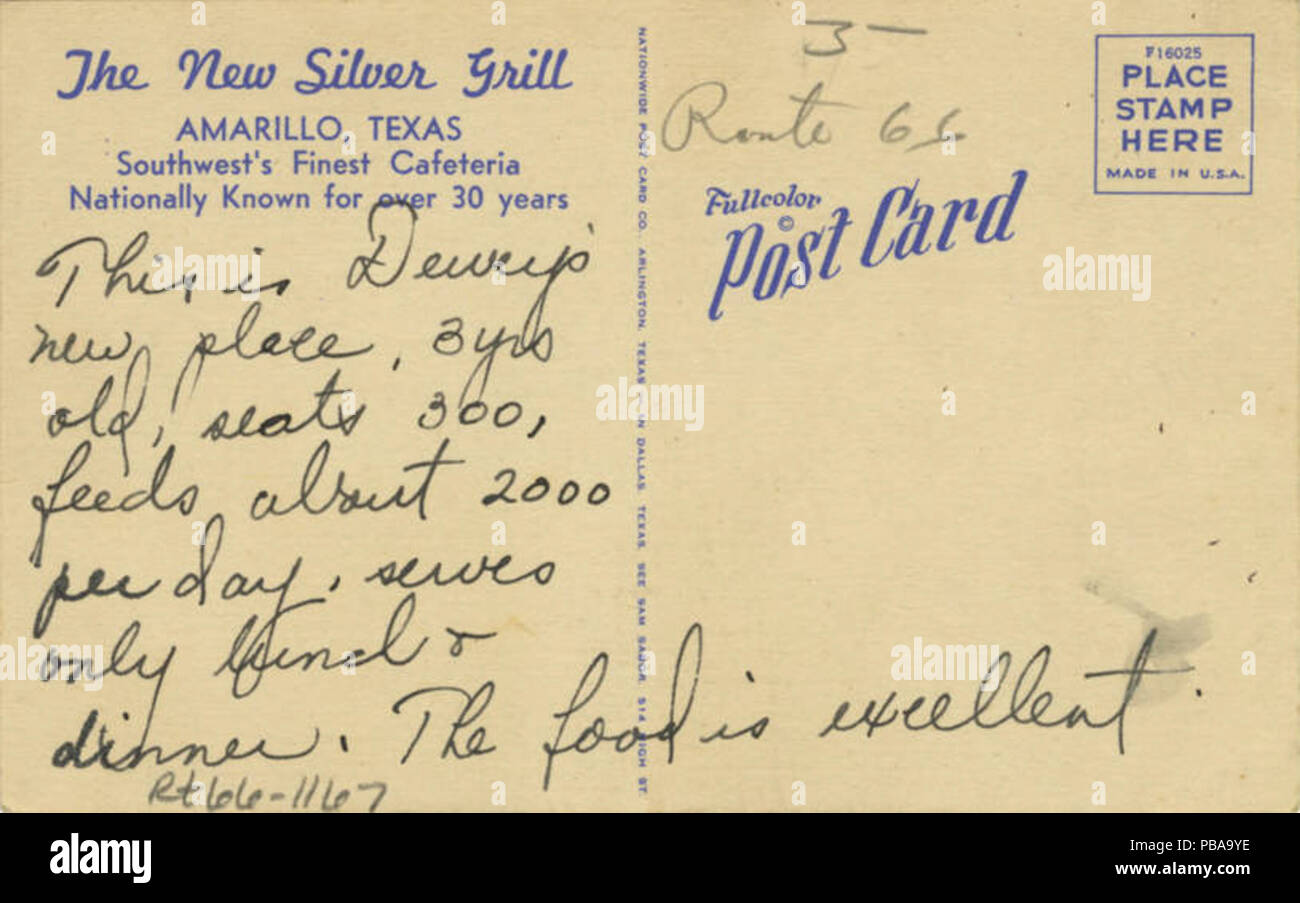 The New Silver Grill
AMARILLO, TEXAS
Southwest's Finest Cafeteria
Nationally Known for over 30 years
This is Dewey's
new place, 3 yrs
old, seats 300,
feeds about 2000
per day, serves
only &
dinner. The food is excellent.
Rt66-1167
NATIONWIDE POST CARD CO. ARLINGTON, TEXAS IN DALLAS, TEXAS, SEE SAM 514 HIGH ST.
3-
Route 66
Fullcolor
©
Post Card
F16025
PLACE
STAMP
HERE
MADE IN U.S.A.
alamy
alamy
Image ID: PBA9YE
www.alamy.com